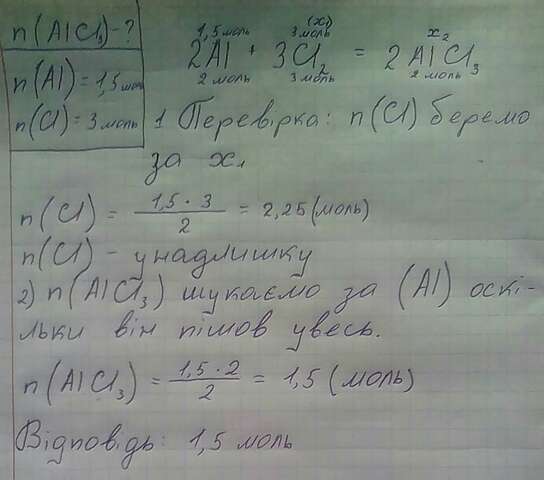 n(AlCl₃)-?
n(Al)=1,5 моль
n(Cl)=3 моль
1,5 моль 3 моль (x₁) x₂
2Al + 3Cl₂ = 2AlCl₃
2 моль 3 моль 2 моль
1 Перевірка: n(Cl) беремо
за x₁
n(Cl) = 1,5 · 3 / 2 = 2,25 (моль)
n(Cl) - у надлишку
2) n(AlCl₃) шукаємо за (Al) оскі-
льки він пішов увесь.
n(AlCl₃) = 1,5 · 2 / 2 = 1,5 (моль)
Відповідь: 1,5 моль